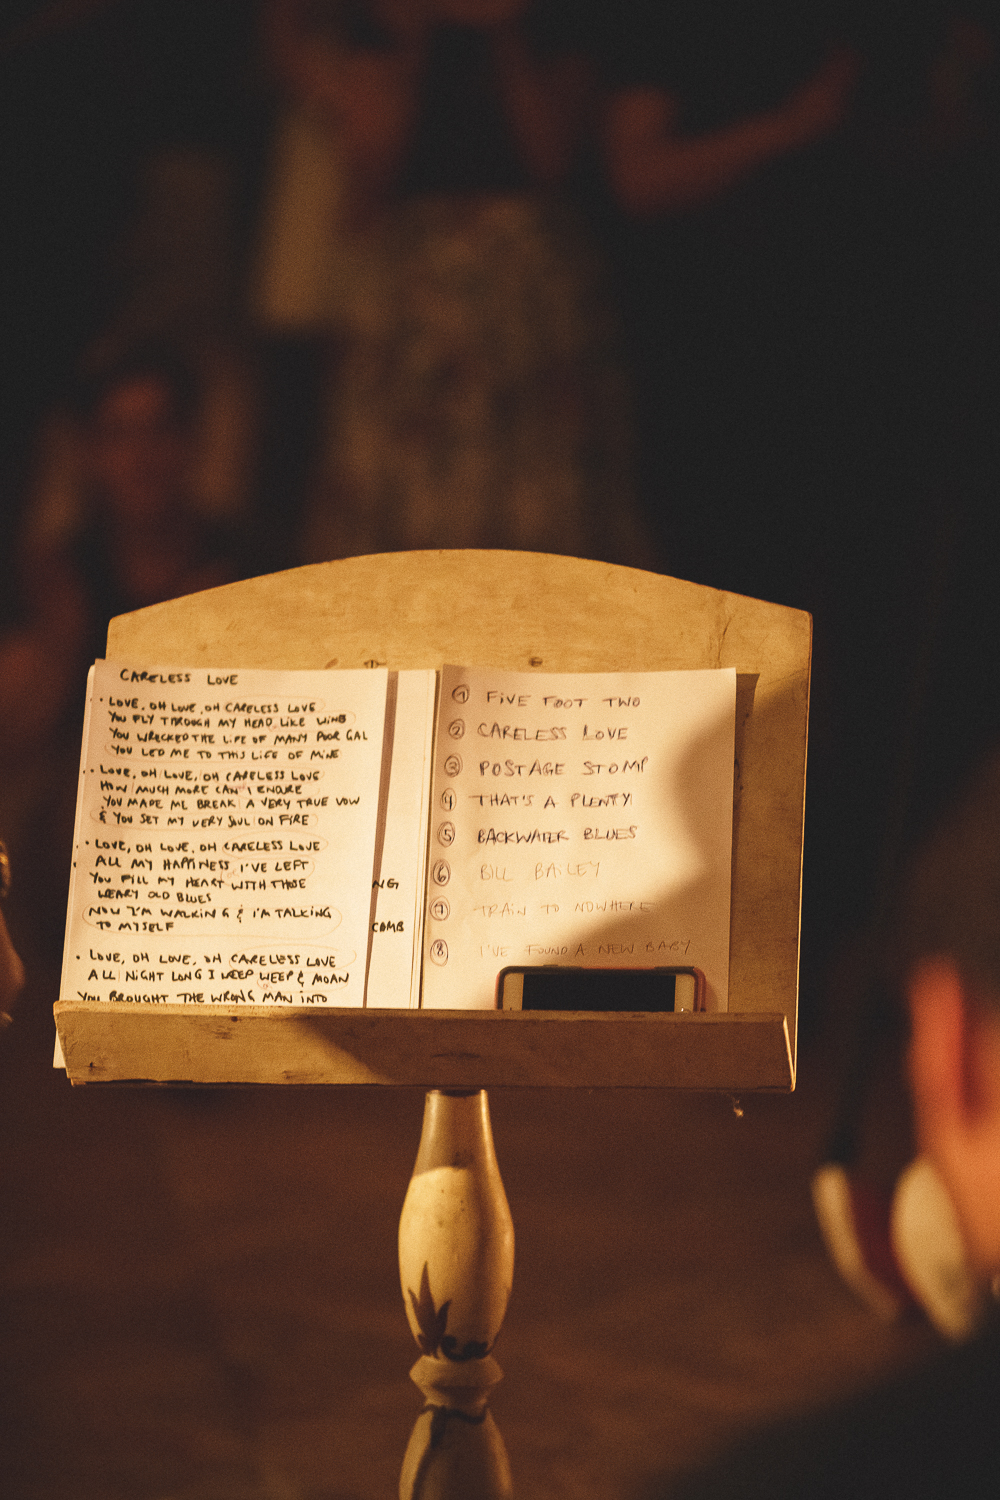 CARELESS LOVE
• LOVE, OH LOVE, OH CARELESS LOVE
YOU FLY THROUGH MY HEAD LIKE WINE
YOU WRECKED THE LIFE OF MANY POOR GAL
YOU LED ME TO THIS LIFE OF MINE
• LOVE, OH LOVE, OH CARELESS LOVE
HOW MUCH MORE CAN I ENDURE
YOU MADE ME BREAK A VERY TRUE VOW
& YOU SET MY VERY SOUL ON FIRE
• LOVE, OH LOVE, OH CARELESS LOVE
ALL MY HAPPINESS I'VE LEFT
YOU FILL MY HEART WITH THOSE
WEARY OLD BLUES
NOW I'M WALKING & I'M TALKING
TO MYSELF
• LOVE, OH LOVE, OH CARELESS LOVE
ALL NIGHT LONG I WEEP WEEP & MOAN
YOU BROUGHT THE WRONG MAN INTO
NG
COMB
① FIVE FOOT TWO
② CARELESS LOVE
③ POSTAGE STOMP
④ THAT'S A PLENTY
⑤ BACKWATER BLUES
⑥ BILL BAILEY
⑦ TRAIN TO NOWHERE
⑧ I'VE FOUND A NEW BABY